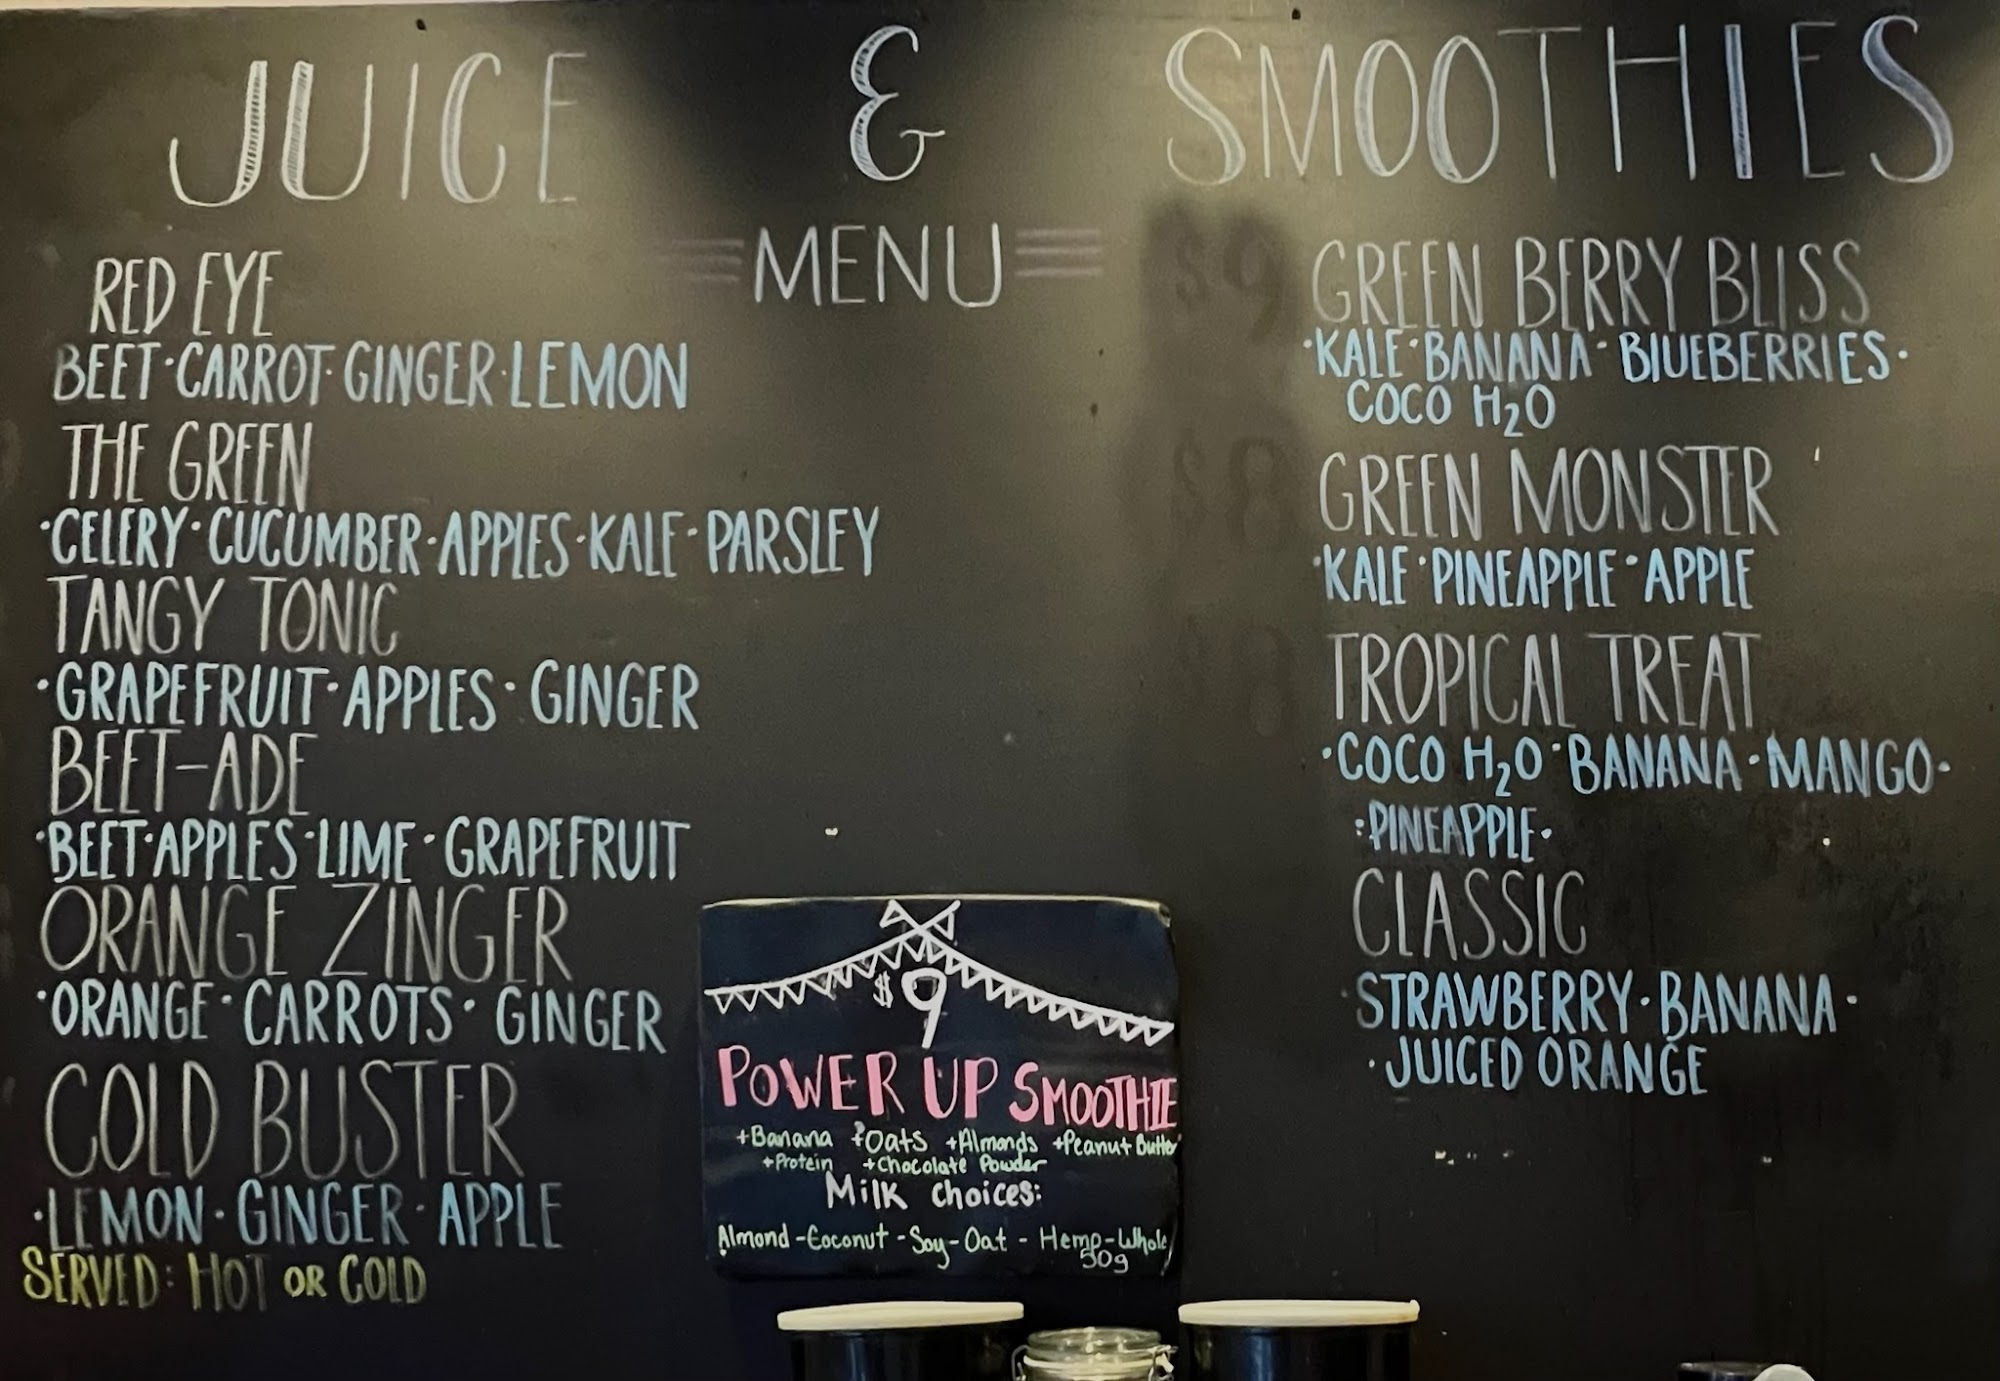 JUICE & SMOOTHIES
MENU
RED EYE
BEET · CARROT · GINGER · LEMON
THE GREEN
· CELERY · CUCUMBER · APPLES · KALE · PARSLEY
TANGY TONIC
· GRAPEFRUIT · APPLES · GINGER
BEET-ADE
· BEET · APPLES · LIME · GRAPEFRUIT
ORANGE ZINGER
· ORANGE · CARROTS · GINGER
COLD BUSTER
· LEMON · GINGER · APPLE
SERVED: HOT OR COLD
$9
POWER UP SMOOTHIE
+Banana +Oats +Almonds +Peanut Butter
+Protein +Chocolate Powder
Milk choices:
Almond - Coconut - Soy - Oat - Hemp - Whole
50g
$9
GREEN BERRY BLISS
· KALE · BANANA · BLUEBERRIES ·
COCO H₂O
$8
GREEN MONSTER
· KALE · PINEAPPLE · APPLE
TROPICAL TREAT
· COCO H₂O · BANANA · MANGO ·
: PINEAPPLE ·
CLASSIC
· STRAWBERRY · BANANA ·
· JUICED ORANGE